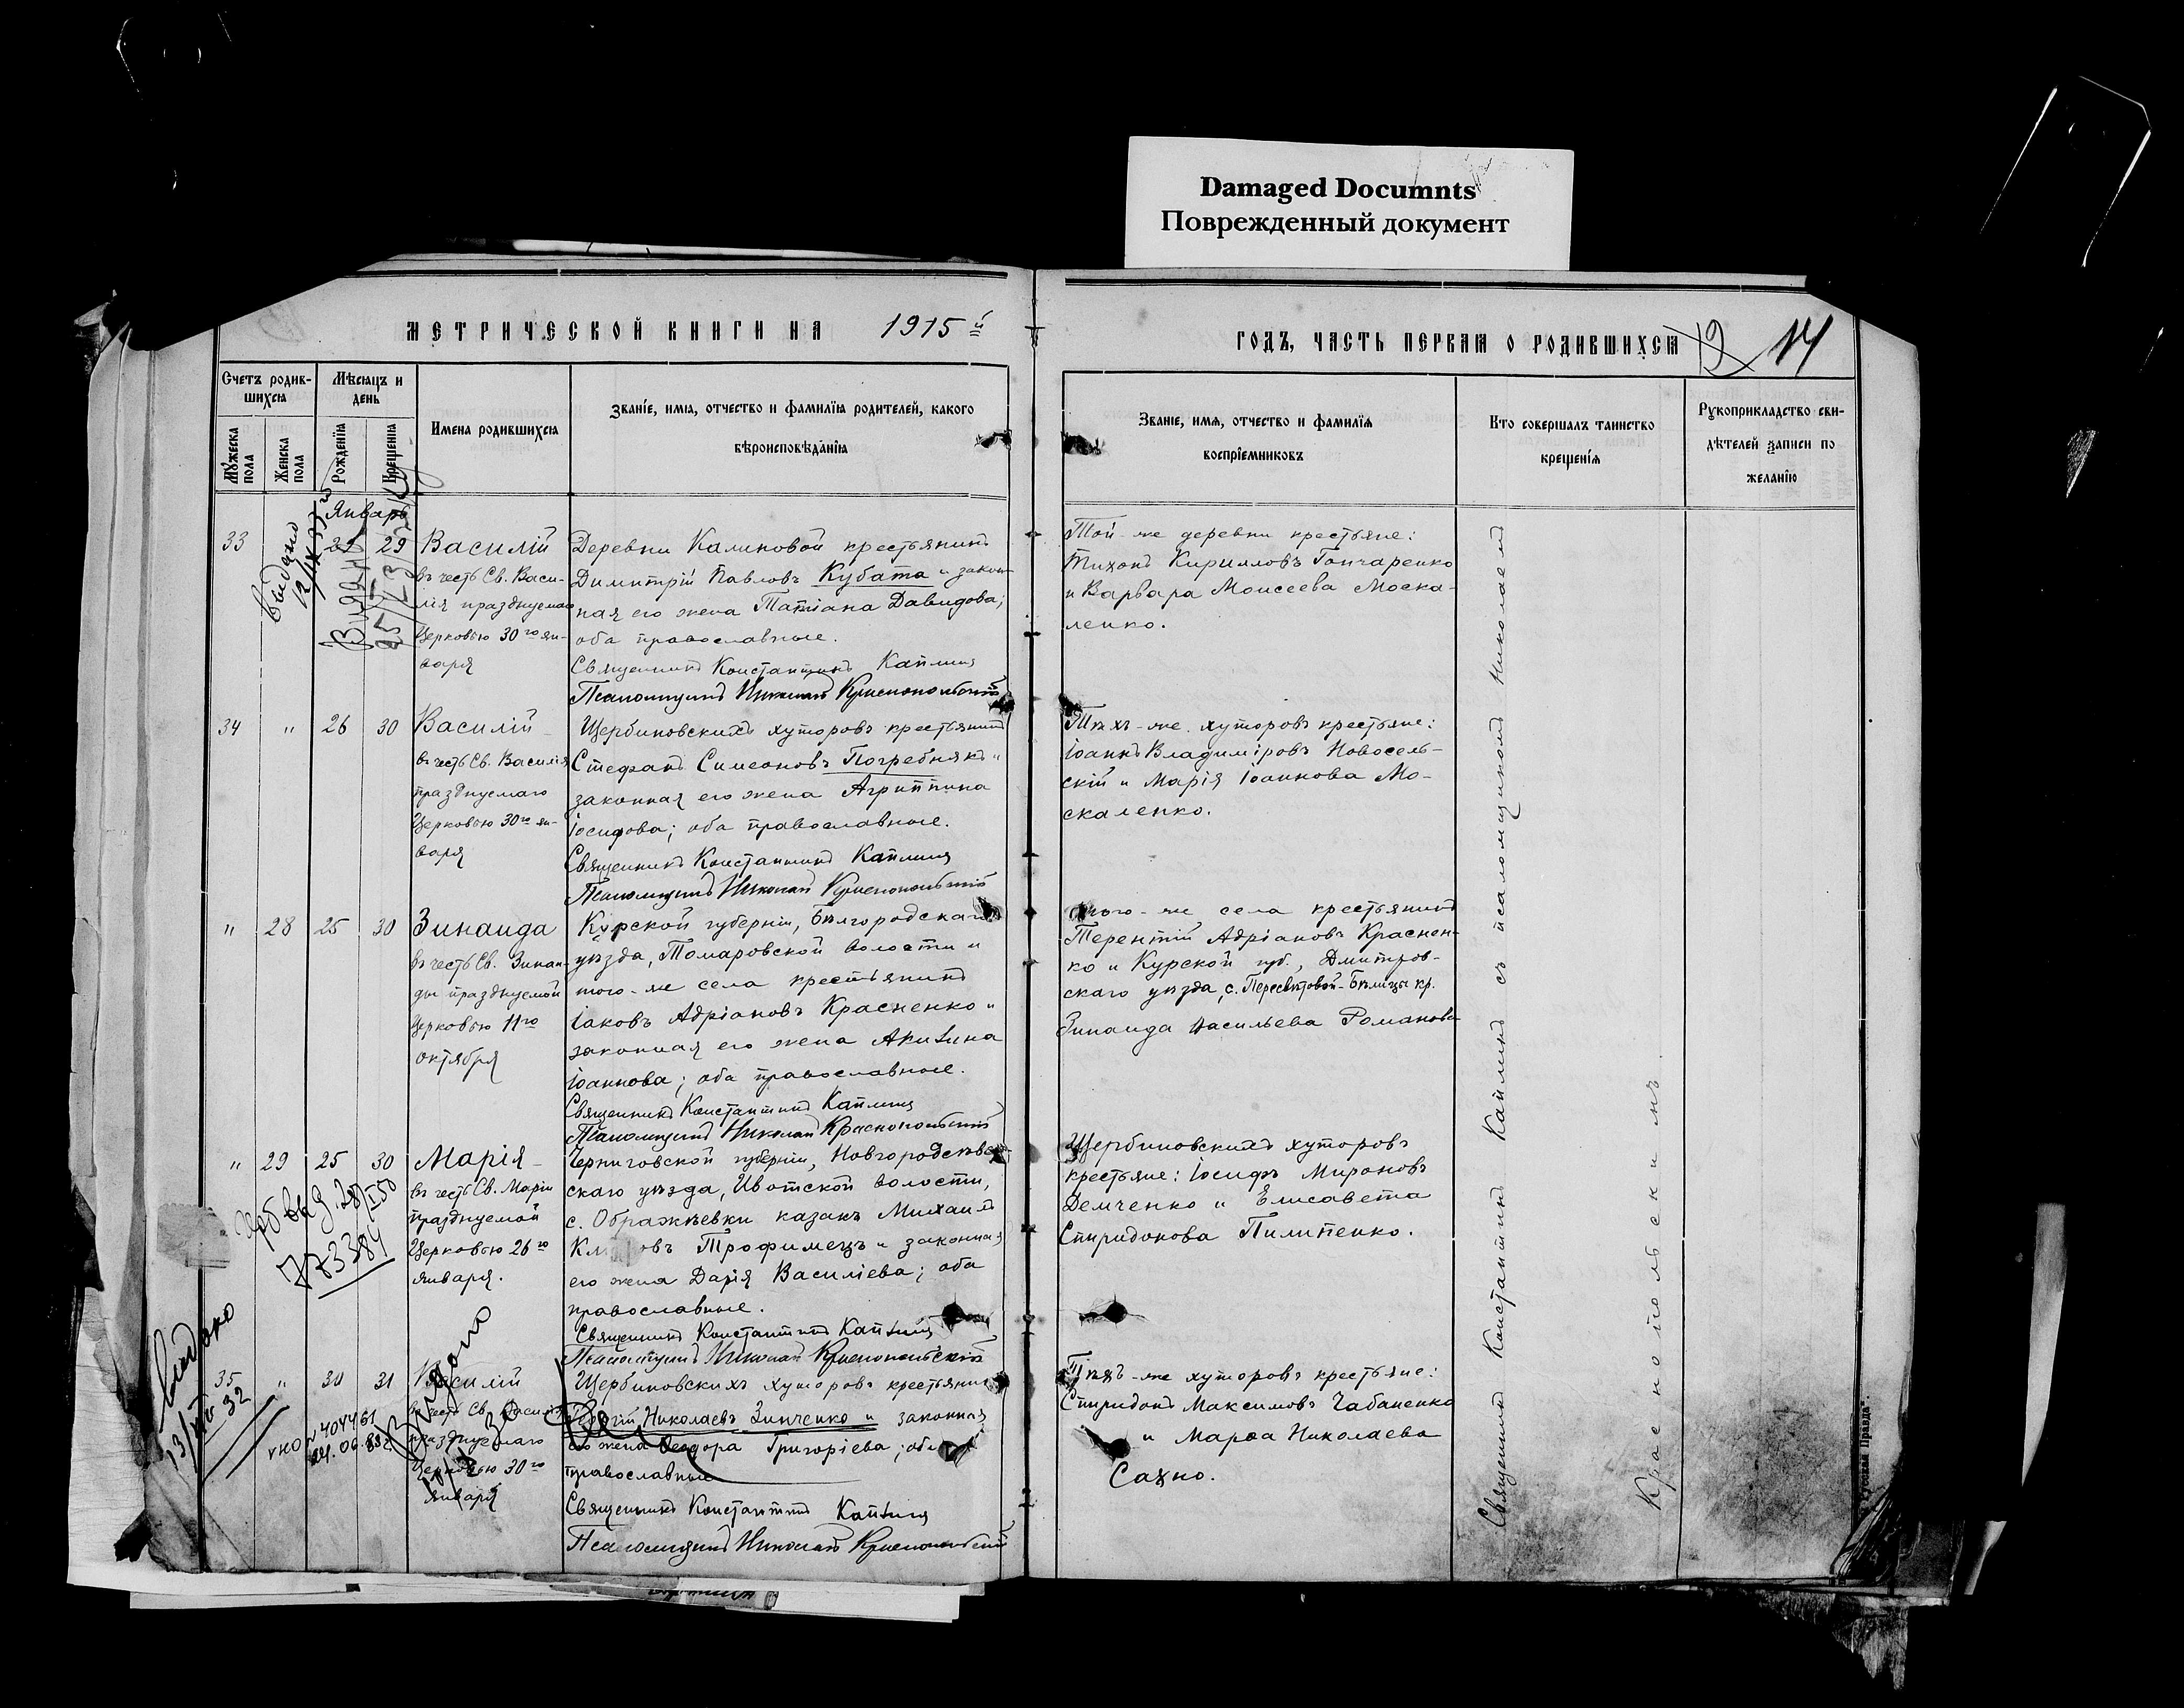 Damaged Documnts
Поврежденный документ
МЕТРИЧЕСКОЙ КНИГИ НА 1915й
ГОДЪ, ЧАСТЬ ПЕРВАЯ О РОДИВШИХСЯ 19 14
Счетъ родив-
шихся
Мѣсяцъ и
день
Мужеска пола
Женска пола
Рожденія
Крещенія
Имена родившихся
Званіе, имя, отчество и фамилія родителей, какого
вѣроисповѣданія
Званіе, имя, отчество и фамилія
воспріемниковъ
Кто совершалъ таинство
крещенія
Рукоприкладство сви-
дѣтелей записи по
желанію
Январь
33 29 Василій
въ честь Св. Васи-
лія празднуемаго
Церковью 30го ян-
варя
Деревни Калиновой крестьянинъ
Димитрій Павловъ Кубата и закон-
ная его жена Татіана Давидова;
оба православные.
Священникъ Константинъ Каплинъ
Псаломщикъ Николай Краснопольскій
Той-же деревни крестьяне:
Тихонъ Кирилловъ Гончаренко
и Варвара Моисеева Моска-
ленко.
Выдано
34 " 26 30 Василій
въ честь Св. Василія
празднуемаго
Церковью 30го ян-
варя
Щербиновскихъ хуторовъ крестьянинъ
Стефанъ Симеоновъ Погребнякъ и
законная его жена Агриппина
Іосифова; оба православные.
Священникъ Константинъ Каплинъ
Псаломщикъ Николай Краснопольскій
Тѣхъ-же хуторовъ крестьяне:
Іоаннъ Владиміровъ Новосель-
скій и Марія Іоаннова Мо-
скаленко.
" 28 25 30 Зинаида
въ честь Св. Зинаи-
ды празднуемой
Церковью 11го
октября
Курской губерніи, Бѣлгородскаго
уѣзда, Томаровской волости и
того-же села крестьянинъ
Іаковъ Адріановъ Красненко и
законная его жена Акилина
Іоаннова; оба православные.
Священникъ Константинъ Каплинъ
Псаломщикъ Николай Краснопольскій
того-же села крестьянинъ
Терентій Адріановъ Краснен-
ко и Курской губ., Дмитров-
скаго уѣзда, с. Пересвѣтовой-Бѣлицы кр.
Зинаида Васильева Романова
" 29 25 30 Марія
въ честь Св. Маріи
празднуемой
Церковью 26го
января.
Черниговской губерніи, Новгородсѣвер-
скаго уѣзда, Ивотской волости,
с. Ображѣевки казакъ Михаилъ
Трофимецъ и законная
его жена Дарія Василіева; оба
православные.
Священникъ Константинъ Каплинъ
Псаломщикъ Николай Краснопольскій
Щербиновскихъ хуторовъ
крестьяне: Іосифъ Мироновъ
Демченко и Елисавета
Спиридонова Пилипенко.
773384
35 " 30 31 Василій
въ честь Св. Василія
празднуемаго
Церковью 30го
января
Щербиновскихъ хуторовъ крестьянинъ
Николаевъ Зинченко и законная
его жена Ѳеодора Григоріева; оба
православные
Священникъ Константинъ Каплинъ
Псаломщикъ Николай Краснопольскій
Тѣхъ-же хуторовъ крестьяне:
Спиридонъ Максимовъ Чабаненко
и Марѳа Николаева
Сахно.
Выдано
Выдано
Священникъ Константинъ Каплинъ съ псаломщикомъ Николаемъ
Краснопольскимъ.